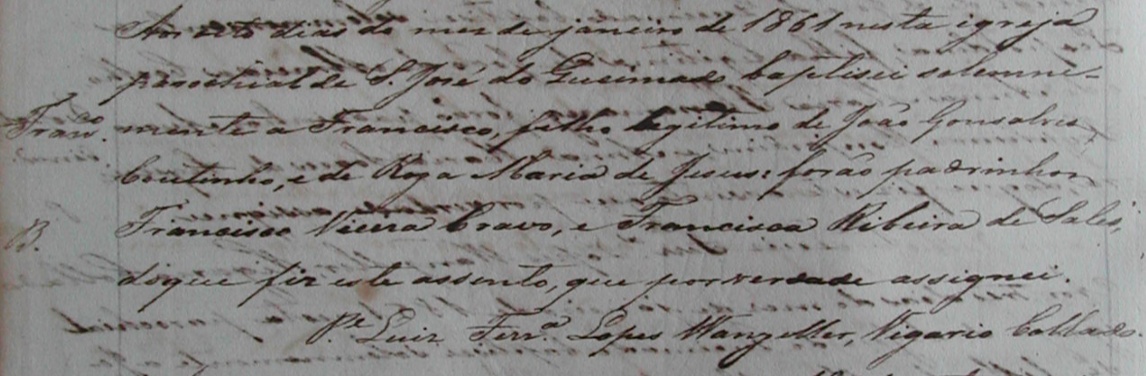 Aos oito dias do mez de janeiro de 1861 nesta igreja
parochial de S. José do Queimado baptisei solemne-
Franco. mente a Francisco, filho legitimo de João Gonsalves
Coutinho, e de Roza Maria de Jesus: forão padrinhos
B. Francisco Vieira Cravo, e Francisca Ribeira de Sales,
do que fiz este assento, que por verdade assignei.
Pe. Luiz Ferra. Lopes Wanzeller, Vigario Collado